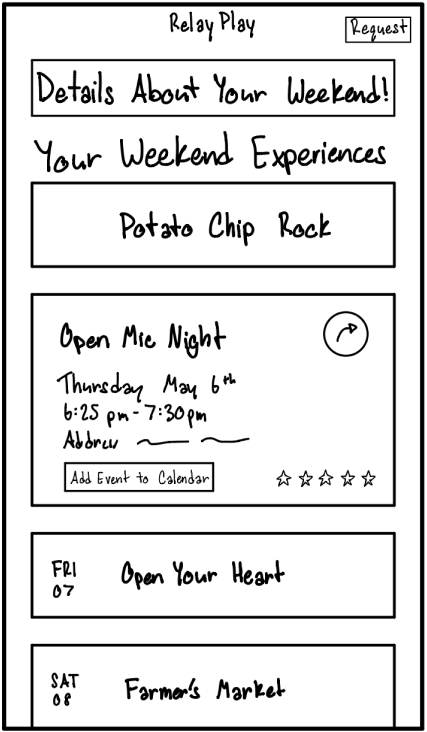 Relay Play
Request
Details About Your Weekend!
Your Weekend Experiences
Potato Chip Rock
Open Mic Night
Thursday May 6th
6:25 pm - 7:30pm
Address
Add Event to Calendar
FRI
07
Open Your Heart
SAT
08
Farmer's Market